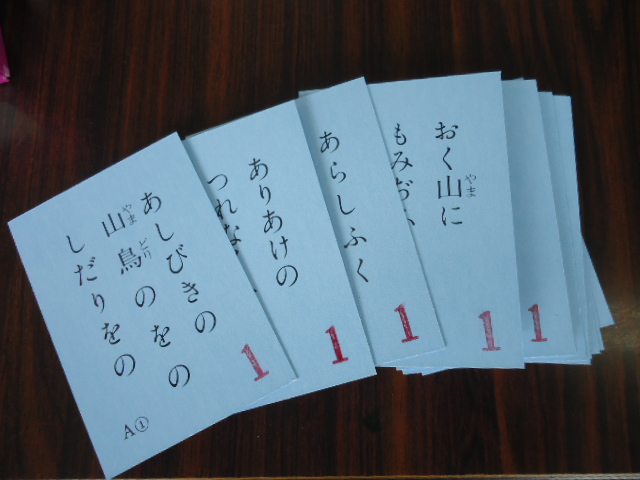 あしびきの
山鳥のをの
しだりをの
A①
1
ありあけの
つれな
1
あらしふく
1
おく山に
もみぢ
1
1